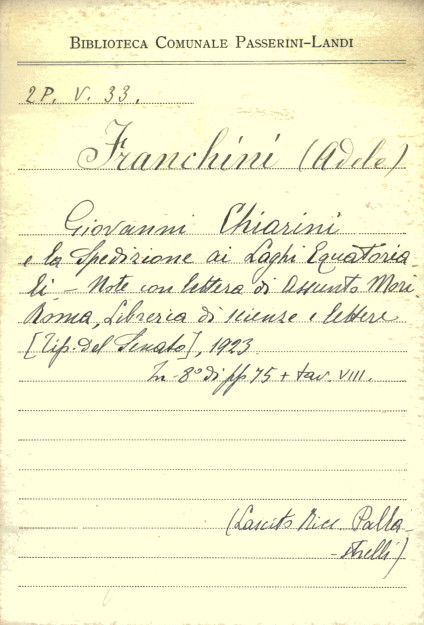 BIBLIOTECA COMUNALE PASSERINI-LANDI
2P. V. 33.
Franchini (Adele)
Giovanni Chiarini
e la Spedizione ai Laghi Equatoria
li - Note con lettera di Assunto Mori
Roma, Libreria di scienze e lettere
[Tip. del Senato], 1923
In-8° di pp 75 + tav. VIII.
(Lascito Palla-
-strelli)